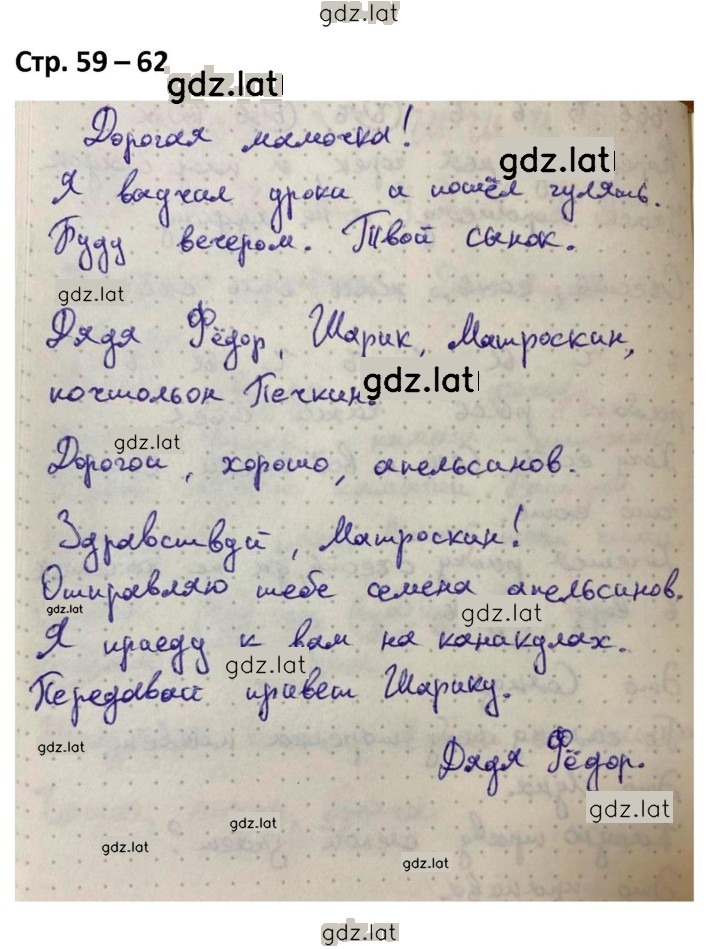 gdz.lat
Стр. 59 – 62
gdz.lat
Дорогая мамочка!
gdz.lat
Я выучил уроки и пошёл гулять.
Буду вечером. Твой сынок.
gdz.lat
Дядя Фёдор, Шарик, Матроскин,
почтольон Печкин.
gdz.lat
gdz.lat
Дорогой, хорошо, апельсинов.
Здравствуй, Матроскин!
Отправляю тебе семена апельсинов.
gdz.lat
gdz.lat
Я приеду к вам на каникулах.
gdz.lat
Передавай привет Шарику.
gdz.lat
Дядя Фёдор.
gdz.lat
gdz.lat
gdz.lat
gdz.lat
gdz.lat